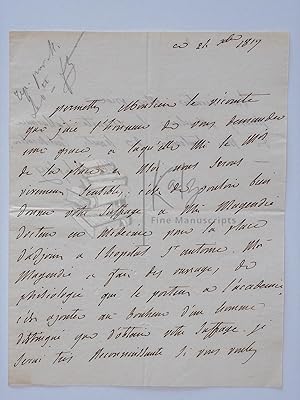 ce 24 xbre 1819
permettez Monsieur le vicomte
que j'aie l'honneur de vous demander
une grace a laquelle Mr le Mis
de la place et Moi nous serons
vivement sensible. c'est de vouloir bien
donner votre suffrage a Mr Magendie
docteur en Medecine pour la place
d'adjoin a l'hopital St antoine. Mr
Magendie a fait des ouvrages de
phisiologie qui le porteront a l'academie.
c'est ajouter au bonheur d'un homme
distingué que d'obtenir votre suffrage. je
serai très Reconnaissante si vous voulez
Fine Manuscripts